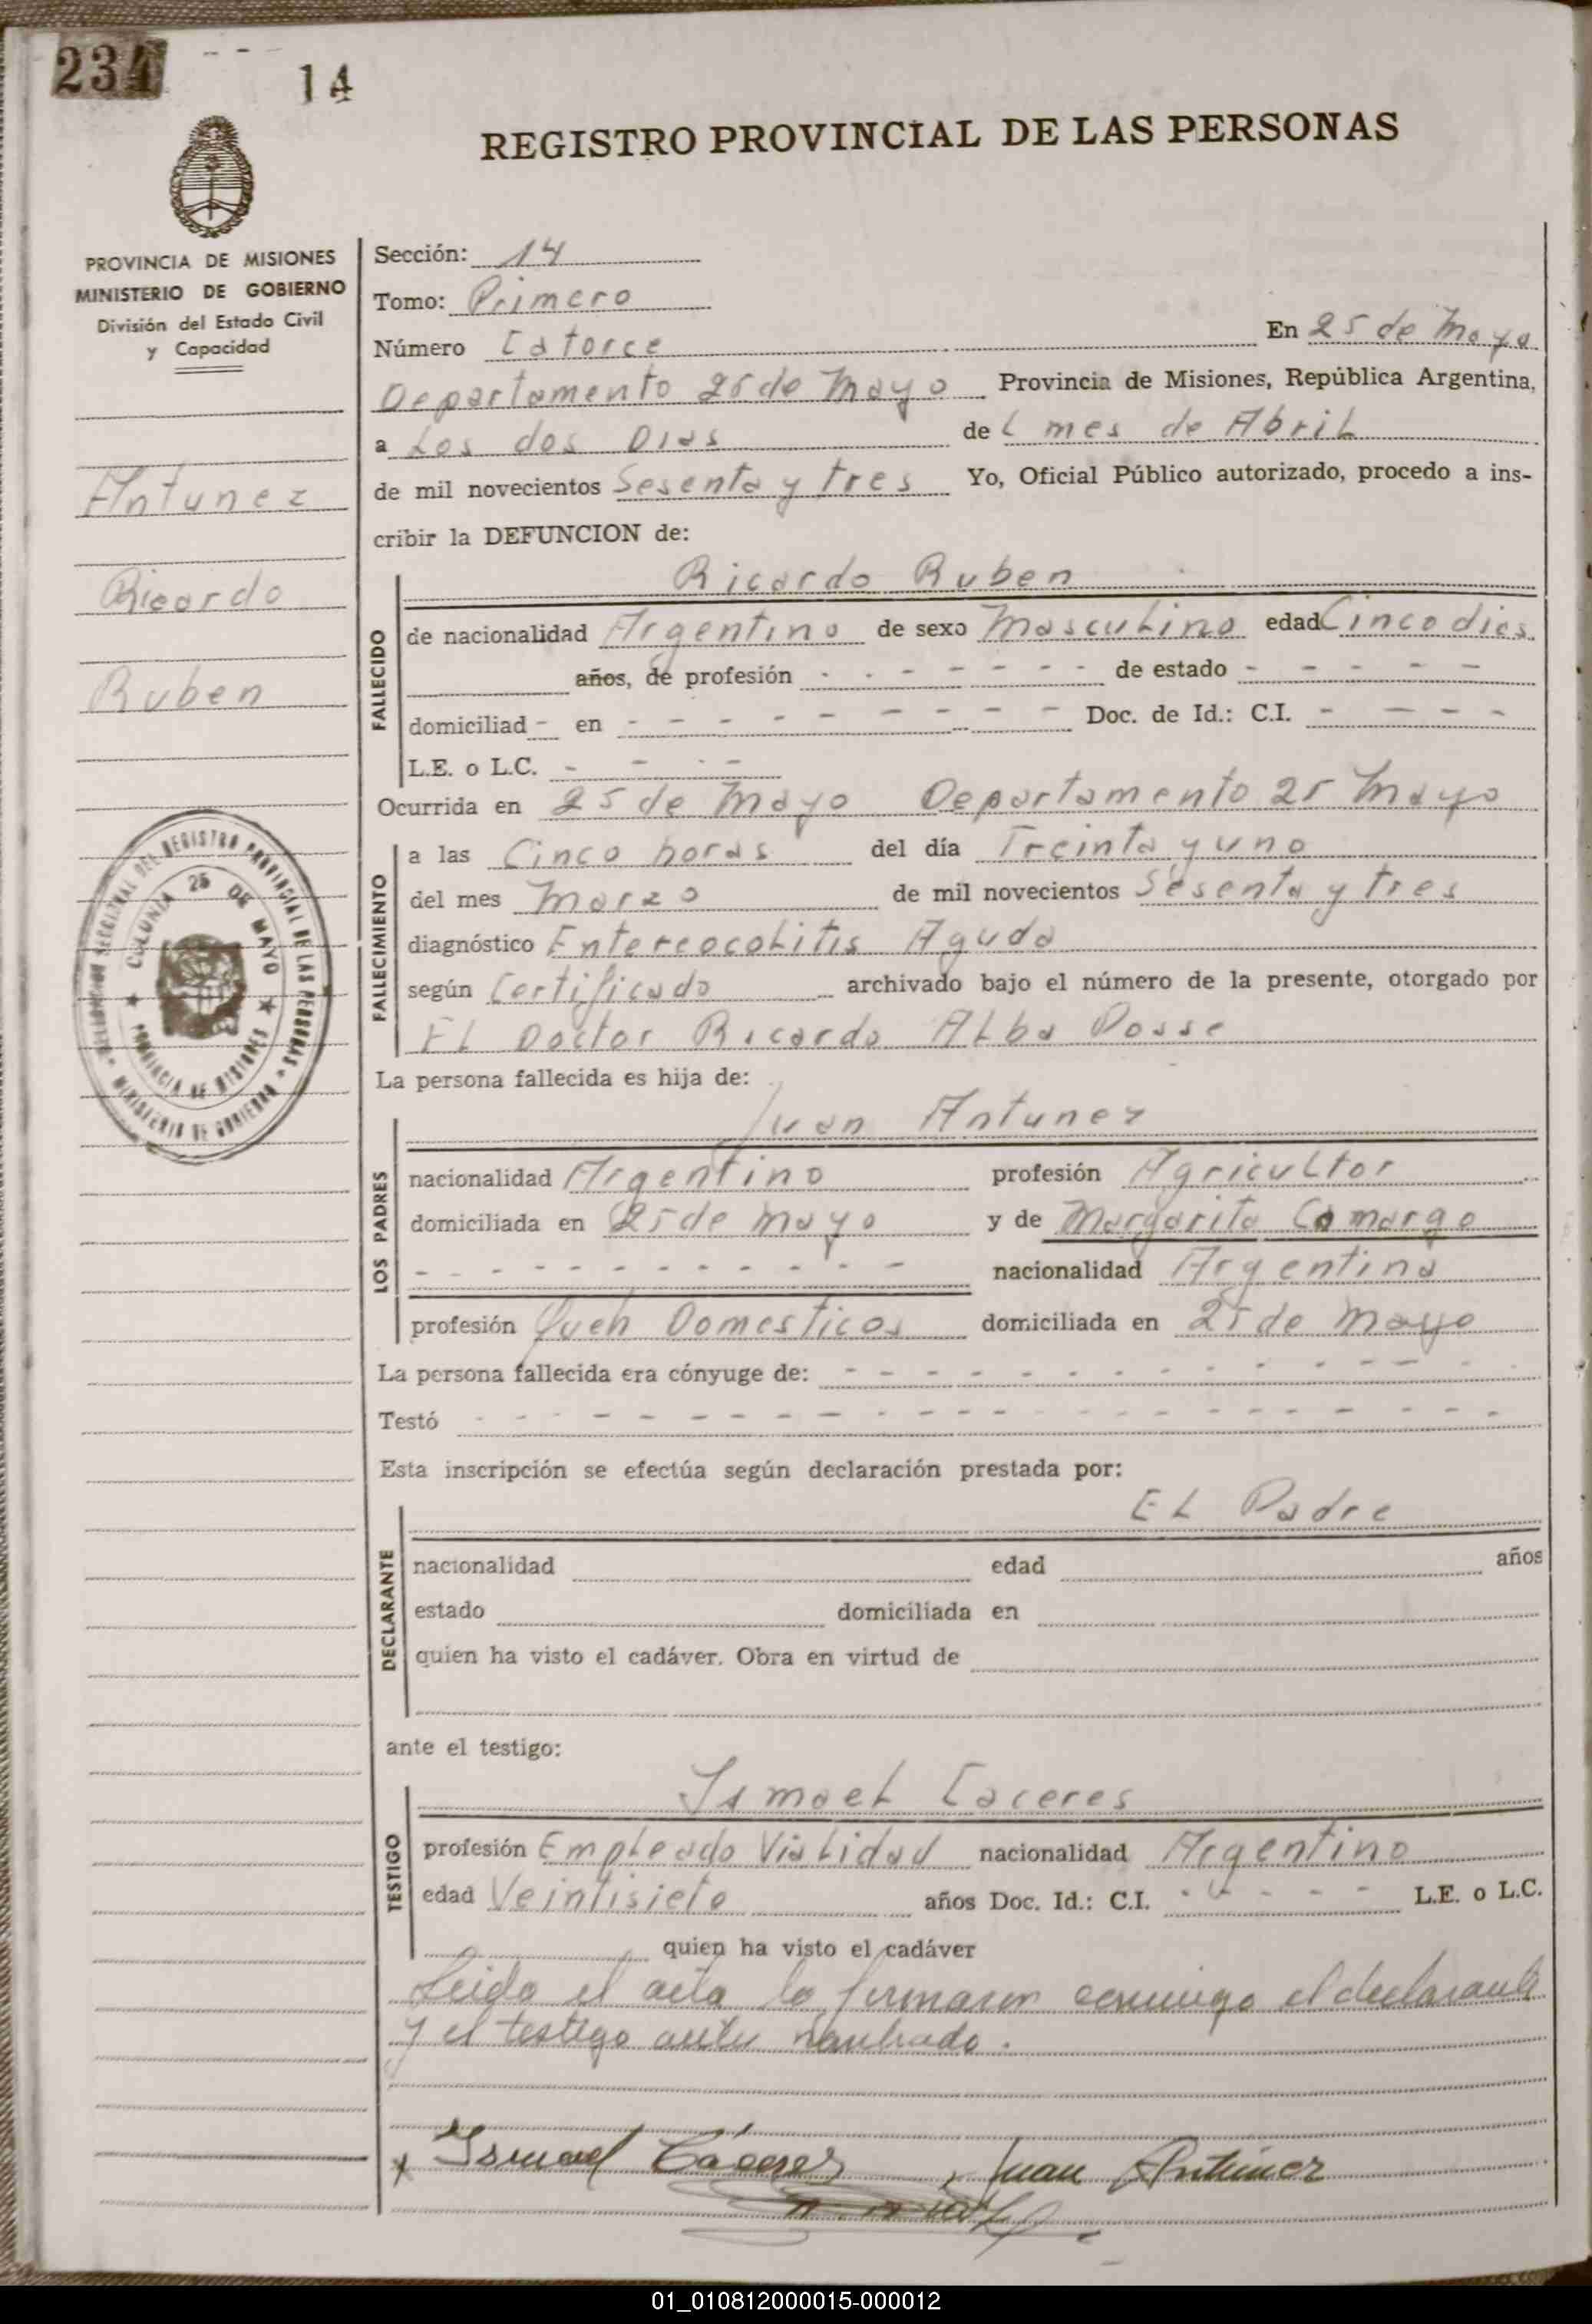 234
14
REGISTRO PROVINCIAL DE LAS PERSONAS
PROVINCIA DE MISIONES
MINISTERIO DE GOBIERNO
División del Estado Civil
y Capacidad
Antunez
Ricardo
Ruben
COLONIA 25 DE MAYO
PROVINCIA DE MISIONES
MINISTERIO DE GOBIERNO
DEL REGISTRO PROVINCIAL DE LAS PERSONAS
Sección: 14
Tomo: Primero
Número Catorce En 25 de Mayo
Departamento 25 de Mayo Provincia de Misiones, República Argentina,
a Los dos Dias de L mes de AbriL
de mil novecientos Sesenta y tres Yo, Oficial Público autorizado, procedo a ins-
cribir la DEFUNCION de:
Ricardo Ruben
FALLECIDO
de nacionalidad Argentino de sexo MascuLino edad Cinco dias
años, de profesión - - - - - - de estado - - - - -
domiciliad - en - - - - - - - - - Doc. de Id.: C.I. - - - -
L.E. o L.C. - - - -
Ocurrida en 25 de Mayo Departamento 25 Mayo
FALLECIMIENTO
a las Cinco horas del día Treinta y uno
del mes Marzo de mil novecientos Sesenta y tres
diagnóstico EntereocoLitis Aguda
según Certificado archivado bajo el número de la presente, otorgado por
EL Doctor Ricardo ALba Posse
La persona fallecida es hija de:
Juan Antunez
LOS PADRES
nacionalidad Argentino profesión AgricuLtor
domiciliada en 25 de Mayo y de Margarita Camargo
- - - - - - - - - - - nacionalidad Argentina
profesión Queh Domesticos domiciliada en 25 de Mayo
La persona fallecida era cónyuge de: - - - - - - - - - - - -
Testó - - - - - - - - - - - - - - - - - -
Esta inscripción se efectúa según declaración prestada por:
EL Padre
DECLARANTE
nacionalidad edad años
estado domiciliada en
quien ha visto el cadáver. Obra en virtud de
ante el testigo:
IsmaeL Caceres
TESTIGO
profesión EmpLeado ViaLidad nacionalidad Argentino
edad Veintisiete años Doc. Id.: C.I. - - - - - L.E. o L.C.
quien ha visto el cadáver
Leida el acta la firmaron conmigo el declarante
y el testigo ante nombrado.
x Ismael Cáceres Juan Antunez
01_010812000015-000012